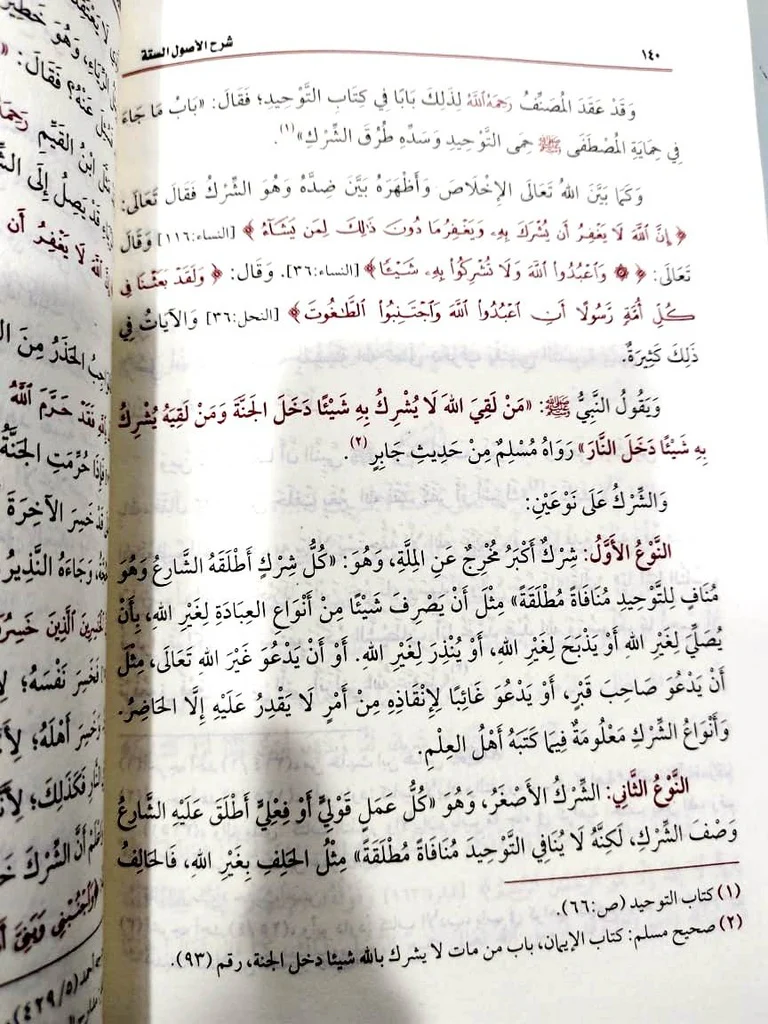 ١٤٠
شرح الأصول الستة
وَقَدْ عَقَدَ المُصَنِّفُ رَحِمَهُ اللَّهُ لِذَلِكَ بَابًا فِي كِتَابِ التَّوْحِيدِ؛ فَقَالَ: «بَابُ مَا جَاءَ
فِي حِمَايَةِ المُصْطَفَى ﷺ حِمَى التَّوْحِيدِ وَسَدِّهِ طُرُقَ الشِّرْكِ»(١).
وَكَمَا بَيَّنَ اللهُ تَعَالَى الإِخْلَاصَ وَأَظْهَرَهُ بَيَّنَ ضِدَّهُ وَهُوَ الشِّرْكُ فَقَالَ تَعَالَى:
﴿إِنَّ اللَّهَ لَا يَغْفِرُ أَن يُشْرَكَ بِهِۦ وَيَغْفِرُ مَا دُونَ ذَٰلِكَ لِمَن يَشَآءُ﴾ [النساء:١١٦] وَقَالَ
تَعَالَى: ﴿۞ وَٱعْبُدُوا۟ ٱللَّهَ وَلَا تُشْرِكُوا۟ بِهِۦ شَيْـًٔا﴾ [النساء:٣٦]. وَقَالَ: ﴿وَلَقَدْ بَعَثْنَا فِى
كُلِّ أُمَّةٍ رَّسُولًا أَنِ ٱعْبُدُوا۟ ٱللَّهَ وَٱجْتَنِبُوا۟ ٱلطَّٰغُوتَ﴾ [النحل:٣٦] وَالآيَاتُ فِي
ذَلِكَ كَثِيرَةٌ.
وَيَقُولُ النَّبِيُّ ﷺ: «مَنْ لَقِيَ اللهَ لَا يُشْرِكُ بِهِ شَيْئًا دَخَلَ الجَنَّةَ وَمَنْ لَقِيَهُ يُشْرِكُ
بِهِ شَيْئًا دَخَلَ النَّارَ» رَوَاهُ مُسْلِمٌ مِنْ حَدِيثِ جَابِرٍ(٢).
وَالشِّرْكُ عَلَى نَوْعَيْنِ:
النَّوْعُ الأَوَّلُ: شِرْكٌ أَكْبَرُ مُخْرِجٌ عَنِ المِلَّةِ، وَهُوَ: «كُلُّ شِرْكٍ أَطْلَقَهُ الشَّارِعُ وَهُوَ
مُنَافٍ لِلتَّوْحِيدِ مُنَافَاةً مُطْلَقَةً» مِثْلَ أَنْ يَصْرِفَ شَيْئًا مِنْ أَنْوَاعِ العِبَادَةِ لِغَيْرِ اللهِ، بِأَنْ
يُصَلِّيَ لِغَيْرِ اللهِ أَوْ يَذْبَحَ لِغَيْرِ اللهِ، أَوْ يُنْذِرَ لِغَيْرِ اللهِ. أَوْ أَنْ يَدْعُوَ غَيْرَ اللهِ تَعَالَى، مِثْلَ
أَنْ يَدْعُوَ صَاحِبَ قَبْرٍ، أَوْ يَدْعُوَ غَائِبًا لِإِنْقَاذِهِ مِنْ أَمْرٍ لَا يَقْدِرُ عَلَيْهِ إِلَّا الحَاضِرُ.
وَأَنْوَاعُ الشِّرْكِ مَعْلُومَةٌ فِيمَا كَتَبَهُ أَهْلُ العِلْمِ.
النَّوْعُ الثَّانِي: الشِّرْكُ الأَصْغَرُ، وَهُوَ «كُلُّ عَمَلٍ قَوْلِيٍّ أَوْ فِعْلِيٍّ أَطْلَقَ عَلَيْهِ الشَّارِعُ
وَصْفَ الشِّرْكِ، لَكِنَّهُ لَا يُنَافِي التَّوْحِيدَ مُنَافَاةً مُطْلَقَةً» مِثْلُ الحَلِفِ بِغَيْرِ اللهِ، فَالحَالِفُ
(١) كتاب التوحيد (ص:٦٦).
(٢) صحيح مسلم: كتاب الإيمان، باب من مات لا يشرك بالله شيئا دخل الجنة، رقم (٩٣).